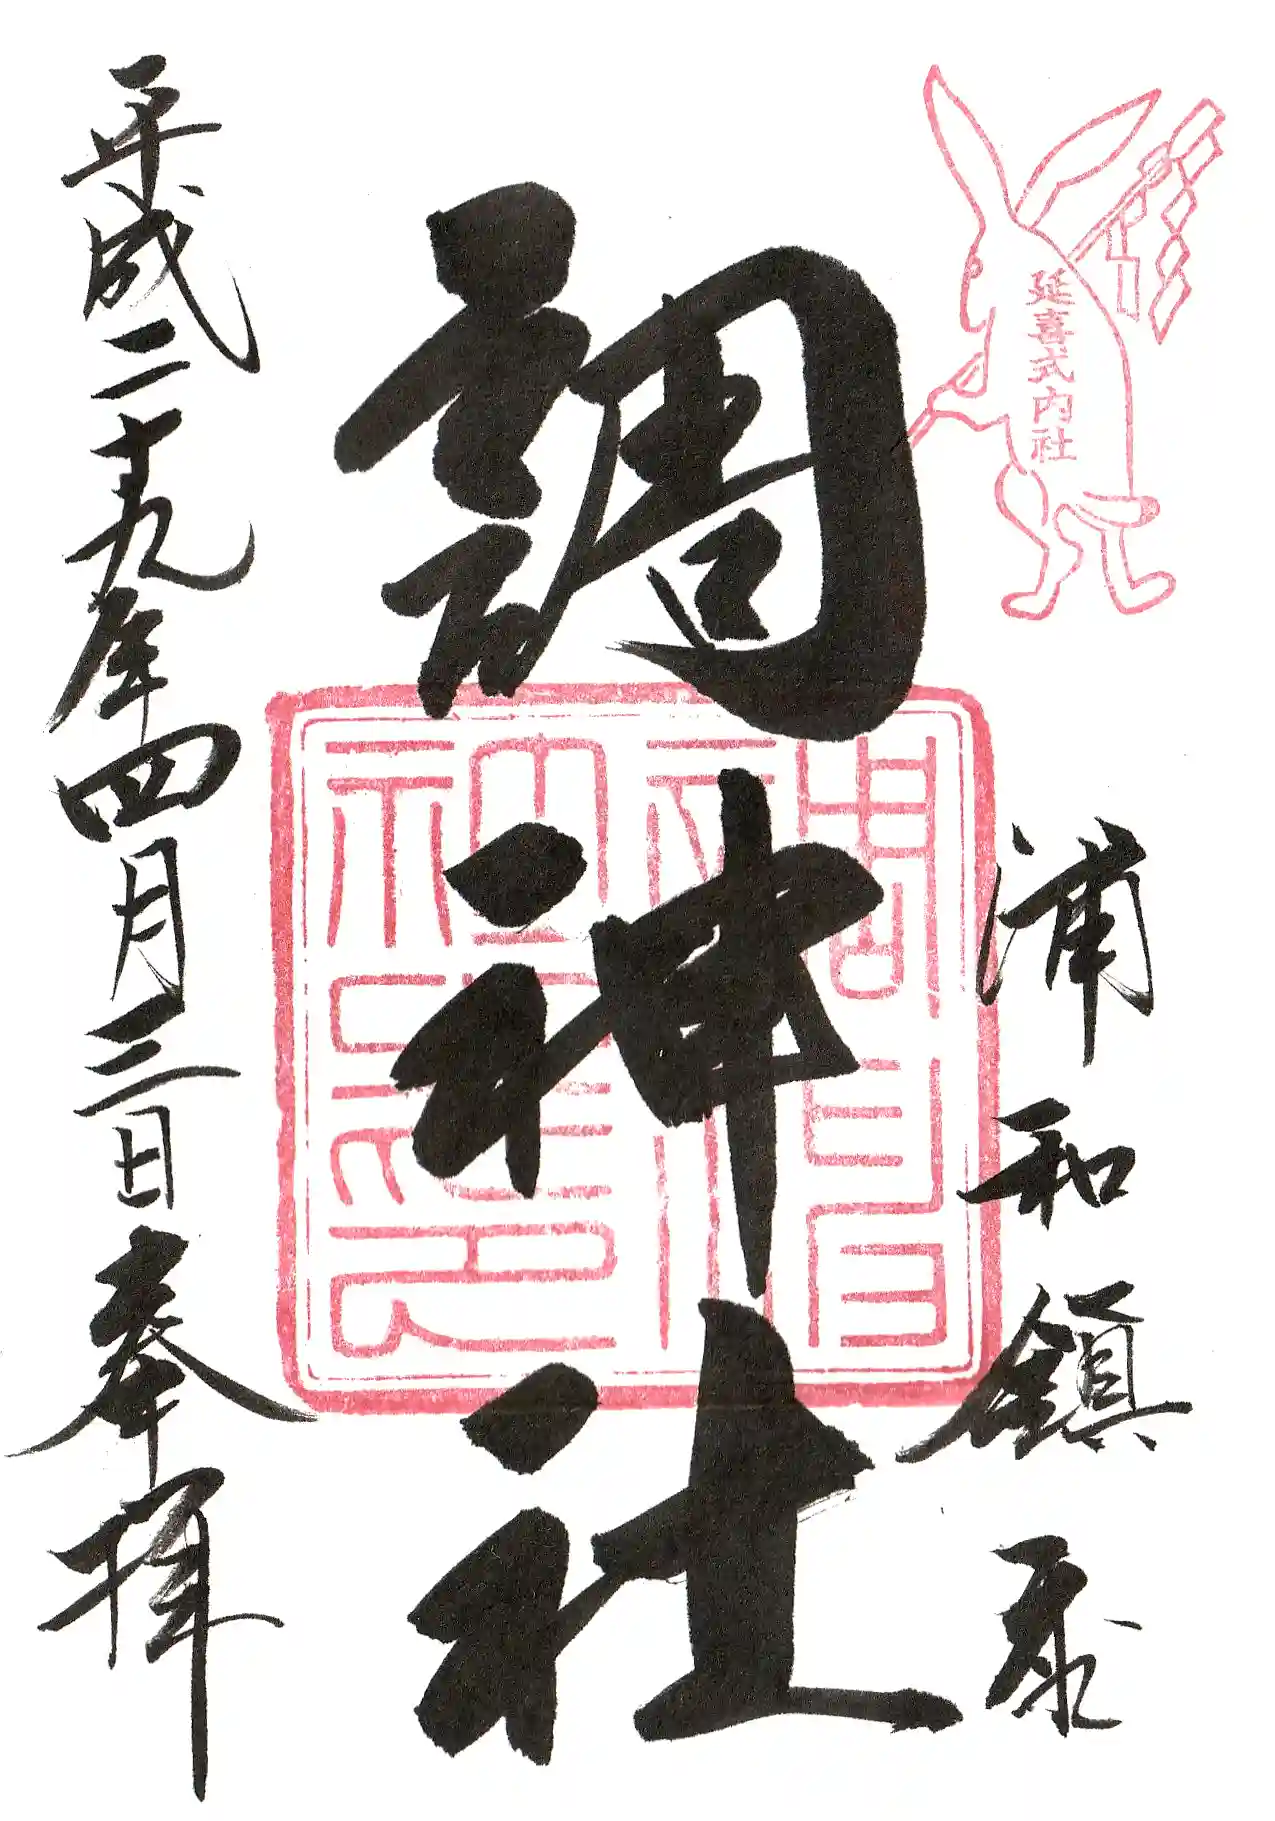 延喜式内社
浦和鎮
調神社
平成二十九年四月三日奉拝